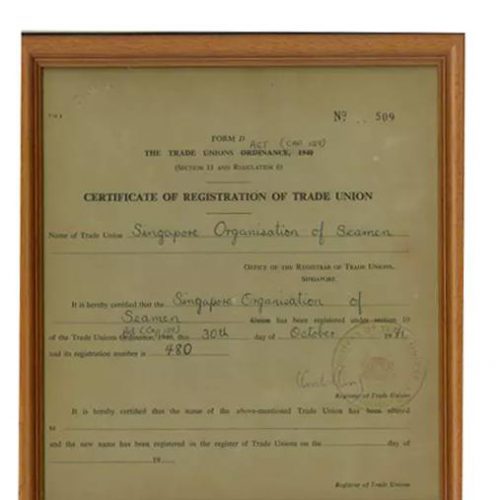 Nº 509
FORM D
ACT (CAP 129)
THE TRADE UNIONS ORDINANCE, 1940
(SECTION 11 AND REGULATION 6)
CERTIFICATE OF REGISTRATION OF TRADE UNION
Name of Trade Union Singapore Organisation of Seamen
OFFICE OF THE REGISTRAR OF TRADE UNIONS,
SINGAPORE.
It is hereby certified that the Singapore Organisation of
Seamen Union has been registered under section 10
Act (CAP 129)
of the Trade Unions Ordinance, 1940, this 30th day of October 1971
and its registration number is 480
Registrar of Trade Unions
It is hereby certified that the name of the above-mentioned Trade Union has been altered
to
and the new name has been registered in the register of Trade Unions on the day of
19
Registrar of Trade Unions